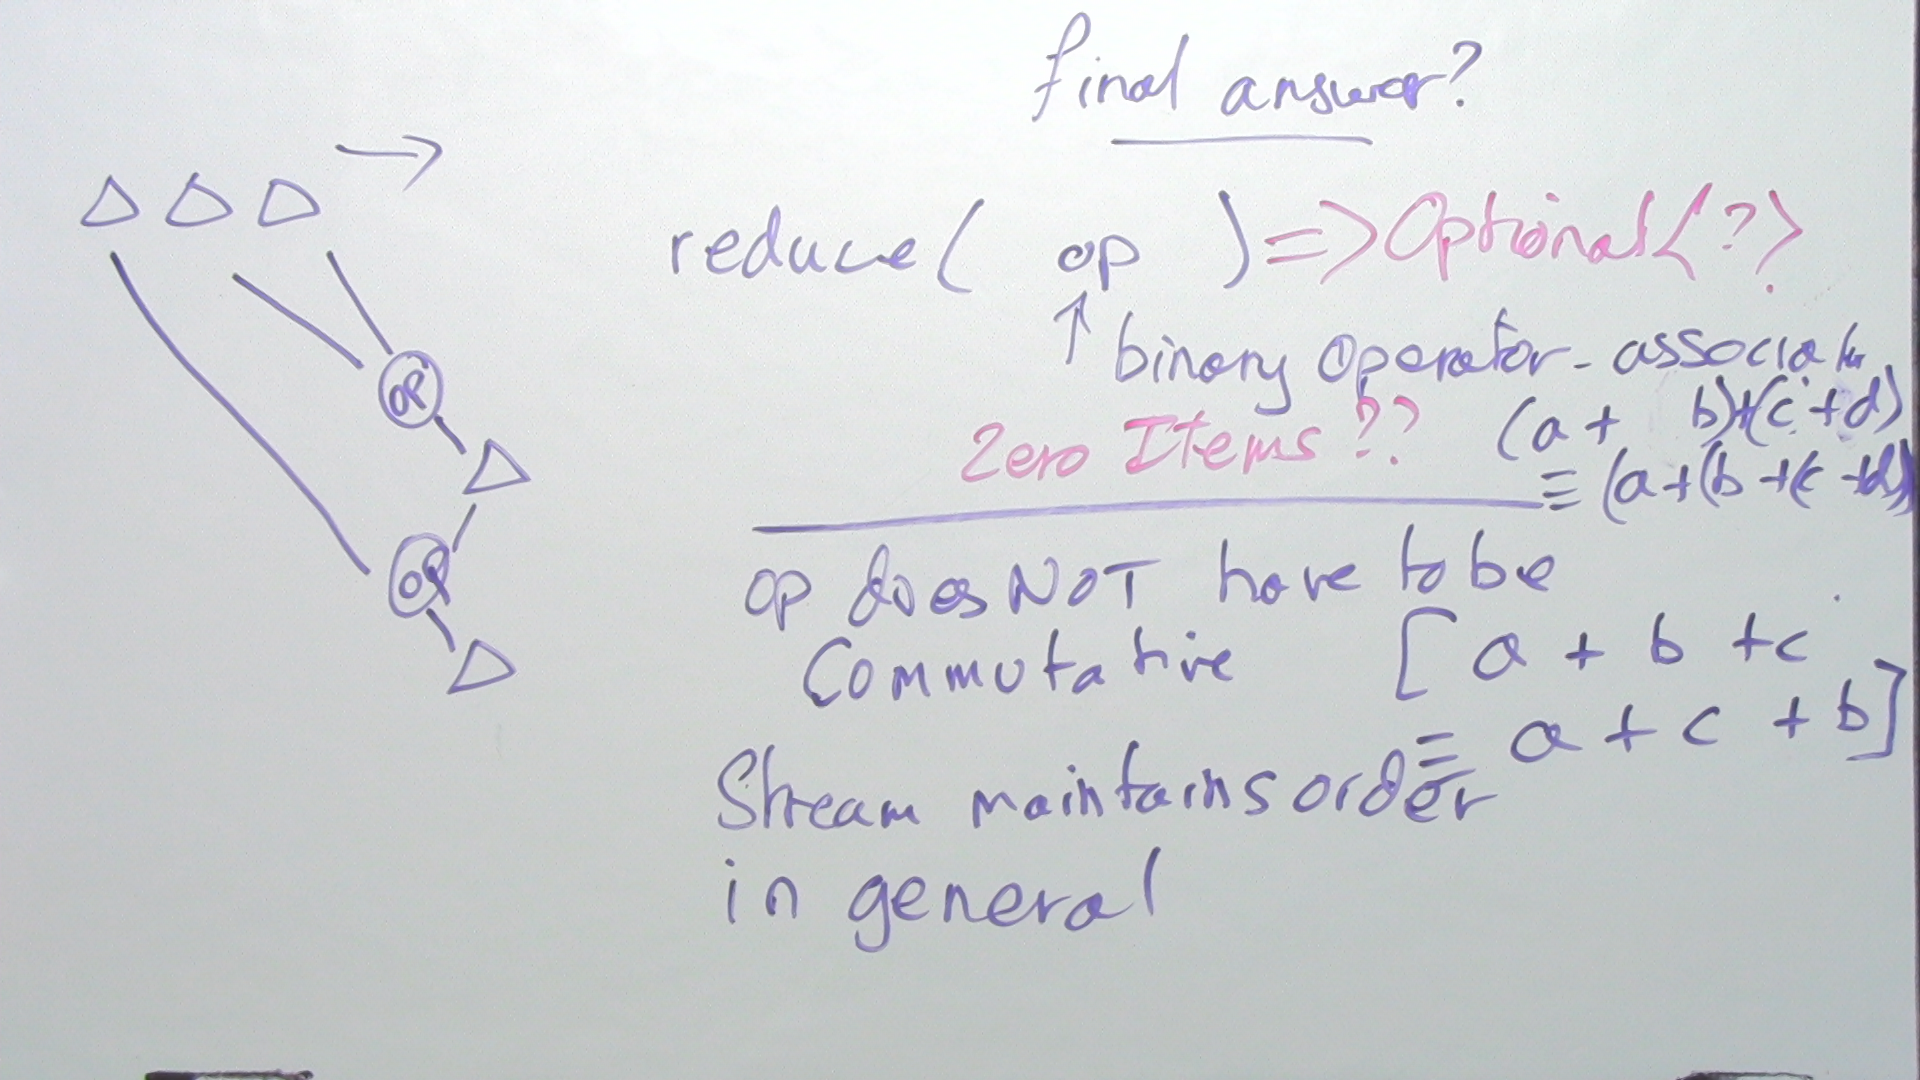 final answer?
reduce( op ) => Optional<?>
↑ binary operator - associative
Zero Items ??
(a + b)+(c+d)
≡ (a+(b+(c+d)
op does NOT have to be
Commutative
[a + b + c
≡ a + c + b]
Stream maintains order
in general
op
op